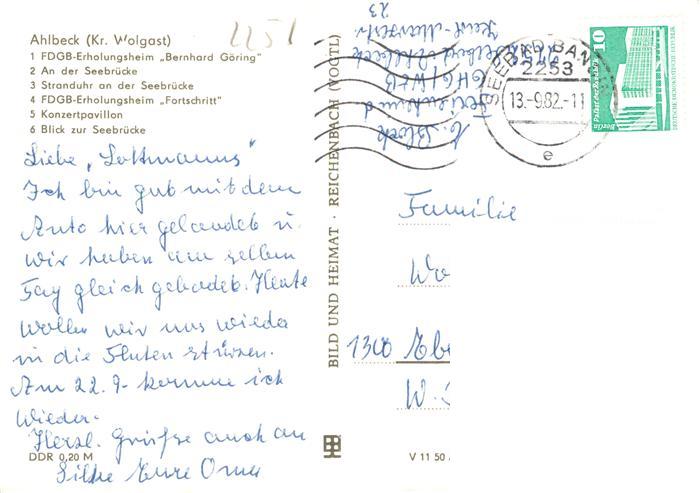 Ahlbeck (Kr. Wolgast)
1 FDGB-Erholungsheim „Bernhard Göring"
2 An der Seebrücke
3 Stranduhr an der Seebrücke
4 FDGB-Erholungsheim „Fortschritt"
5 Konzertpavillon
6 Blick zur Seebrücke
2251
Liebe „Lottmanns"
Ich bin gut mit dem
Auto hier gelandet u.
wir haben am selben
Tag gleich gebadet. Heute
wollen wir uns wieder
in die Fluten stürzen.
Am 22. 9. komme ich
wieder.
Herzl. Grüße auch an
Silke Eure Oma
DDR 0,20 M
BILD UND HEIMAT · REICHENBACH (VOGTL)
V 11 50
Ahlbeck
23
SEEBAD BAN
2253
13.-9.82.-11
e
10
Berlin Palast der Republik
DEUTSCHE DEMOKRATISCHE REPUBLIK
Familie
Wo
1300 Ebe
W.